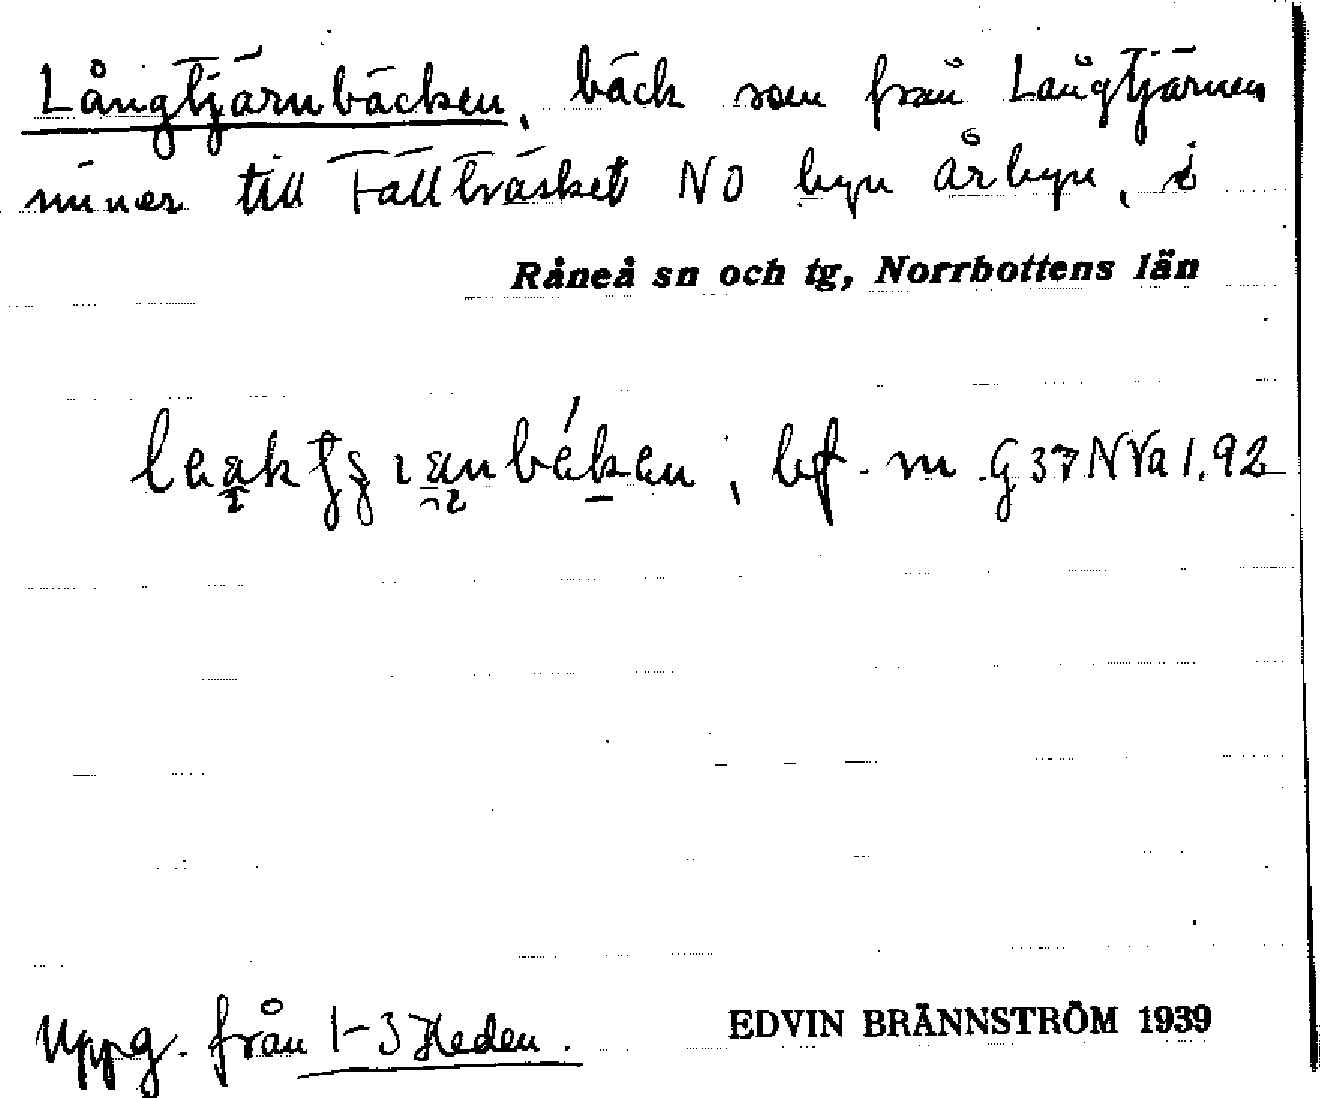 Långtjärnbäcken, bäck som från Långtjärnen
rinner till Fällträsket NO byn Årbyn, i
Råneå sn och tg, Norrbottens län
bf. m. G 37 NVa 1.92
Uppg. från 1-3 Heden.
EDVIN BRÄNNSTRÖM 1939